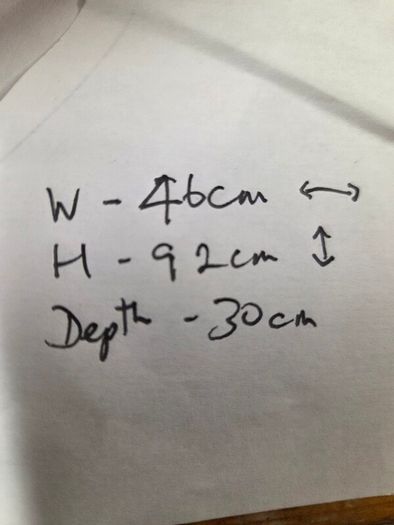 W - 46cm ↔
H - 92cm ↕
Depth - 30cm